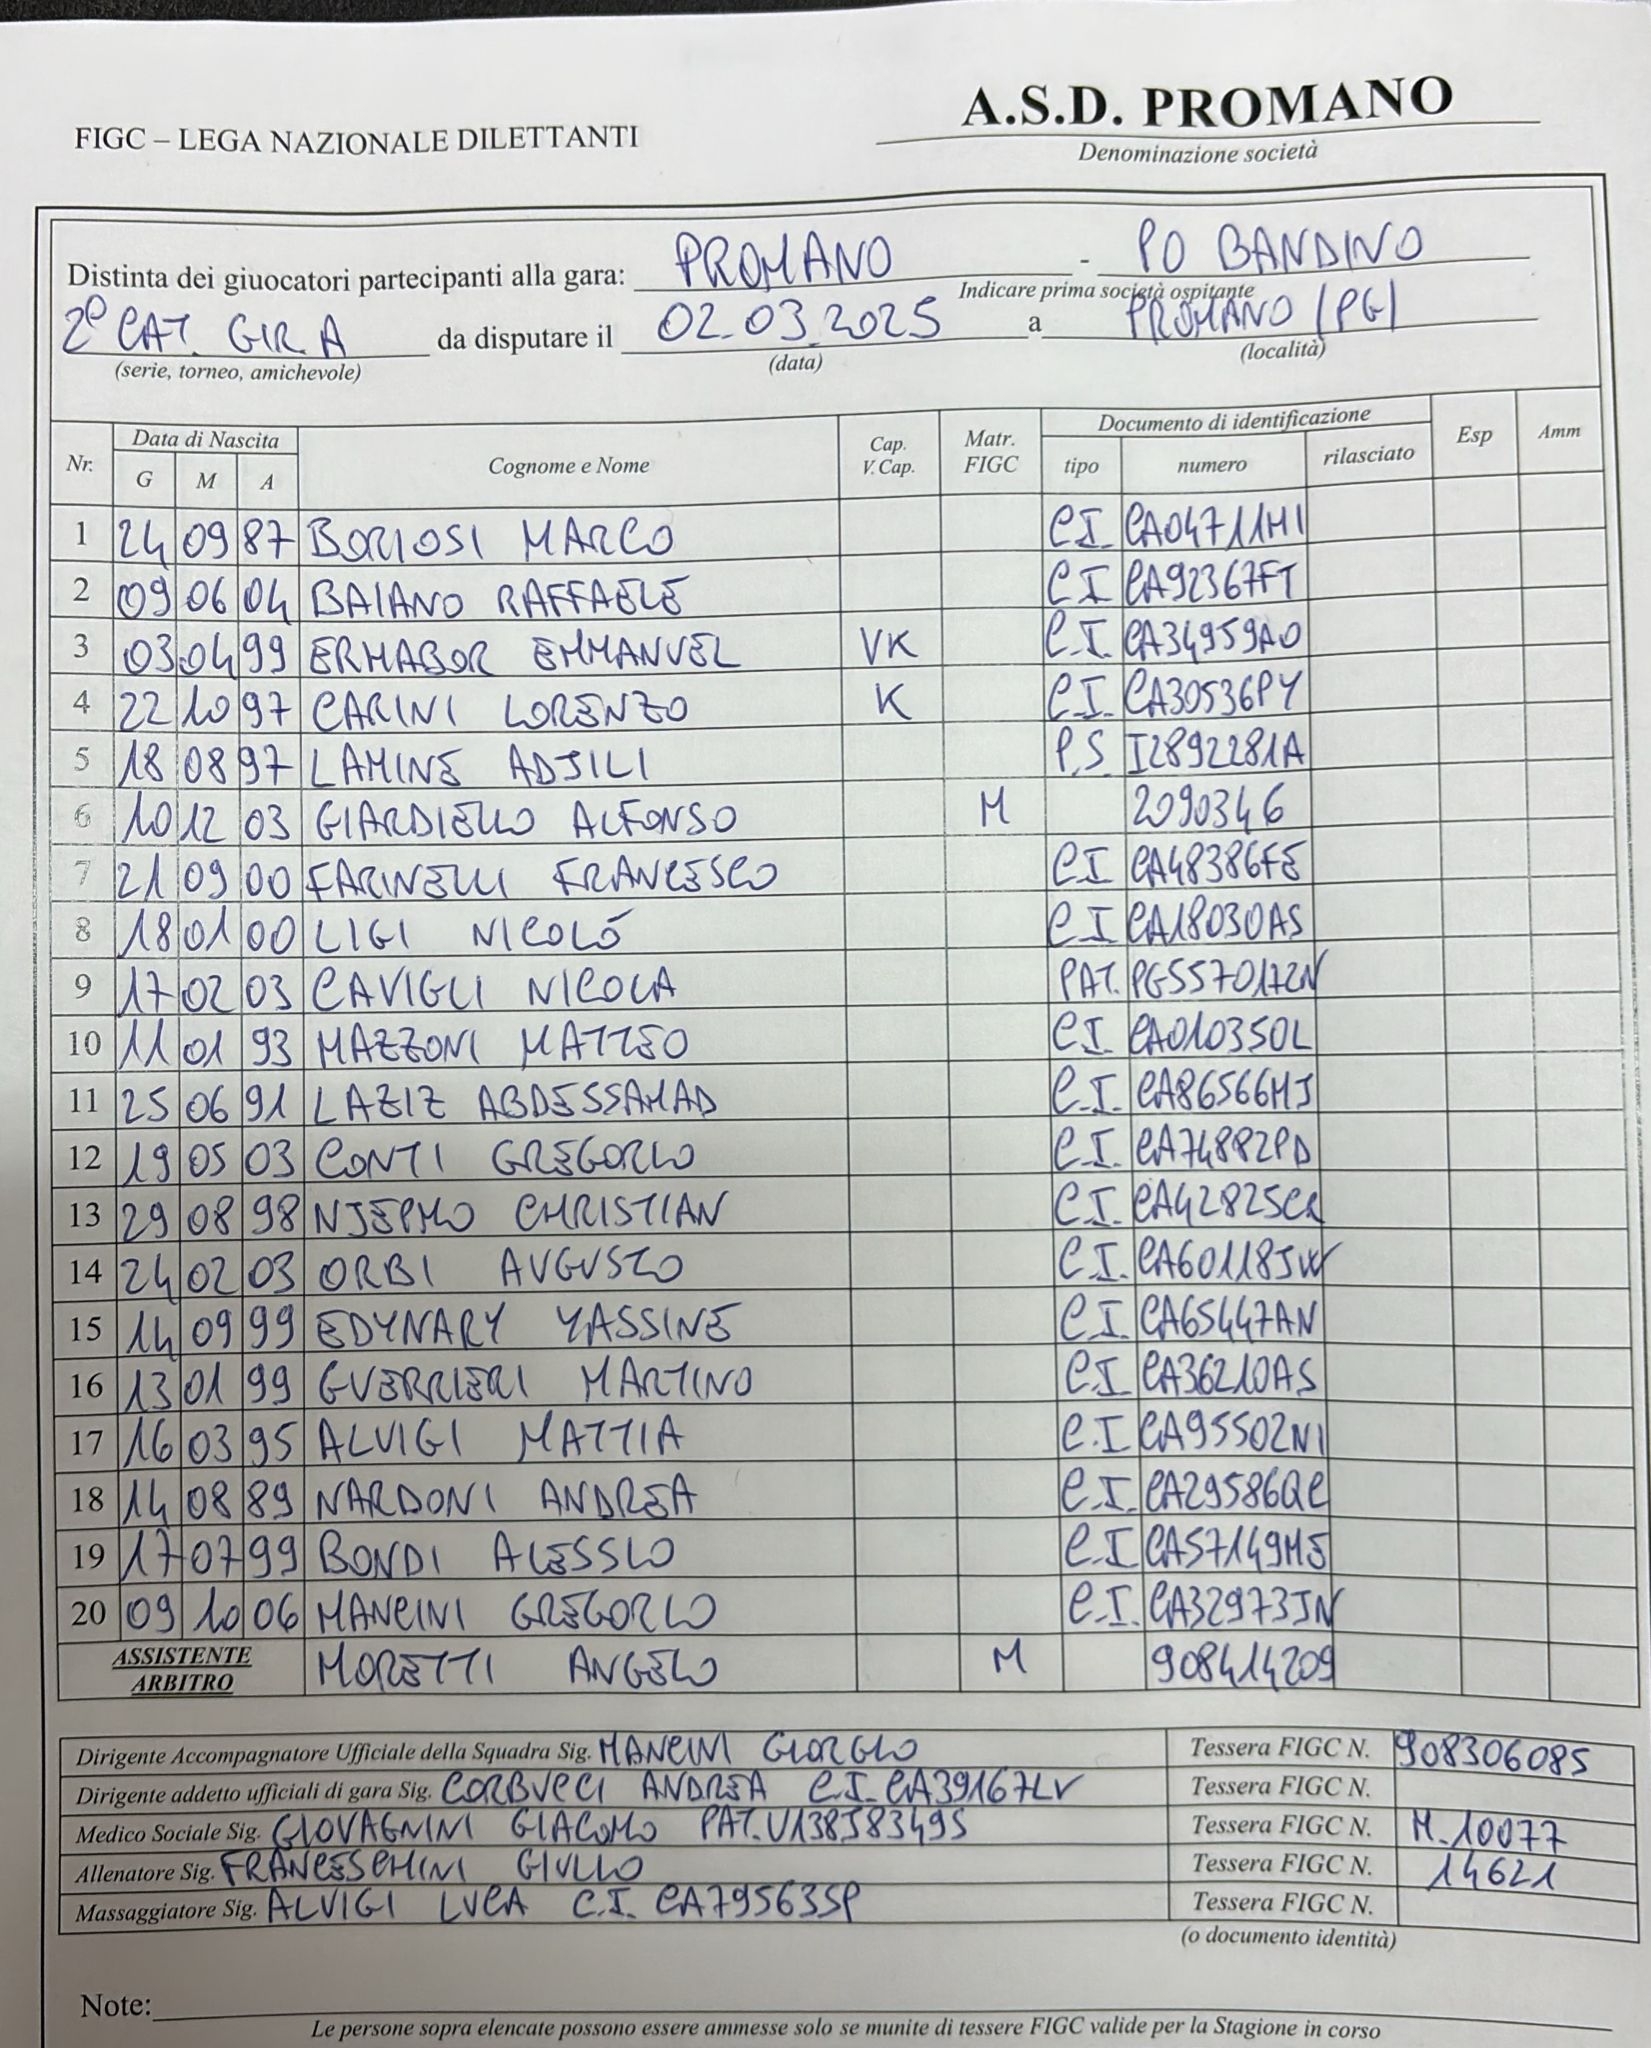 A.S.D. PROMANO
FIGC – LEGA NAZIONALE DILETTANTI
Denominazione società
Distinta dei giuocatori partecipanti alla gara: PROMANO - PO BANDINO
Indicare prima società ospitante
2º CAT. GIR. A da disputare il 02.03.2025 a PROMANO (PG)
(serie, torneo, amichevole) (data) (località)
Nr. Data di Nascita Cognome e Nome Cap. V. Cap. Matr. FIGC Documento di identificazione Esp Amm
G M A tipo numero rilasciato
1 24 09 87 BORIOSI MARCO C.I. CA04711HI
2 09 06 04 BAIANO RAFFAELE C.I CA92367FT
3 03 04 99 ERMABOR EMMANUEL VK C.I. CA34959AO
4 22 10 97 CARINI LORENZO K C.I. CA30536PY
5 18 08 97 LAMINE ADJILI P.S. I2892281A
6 10 12 03 GIARDIELLO ALFONSO M 2090346
7 21 09 00 FARINELLI FRANCESCO C.I CA48386FE
8 18 01 00 LIGI NICOLÓ C.I CA18030AS
9 17 02 03 CAVIGLI NICOLA PAT. PG5570172N
10 11 01 93 MAZZONI MATTEO C.I. CA01035OL
11 25 06 91 LAZIZ ABDESSAMAD C.I. CA86566MJ
12 19 05 03 CONTI GREGORIO C.I. CA74882PD
13 29 08 98 NJEPMO CHRISTIAN C.I.
14 24 02 03 ORBI AUGUSTO C.I. CA60118JW
15 14 09 99 EDYNARY YASSINE C.I. CA65447AN
16 13 01 99 GUERRIERI MARTINO C.I. CA36210AS
17 16 03 95 ALVIGI MATTIA C.I CA95502NI
18 14 08 89 NARDONI ANDREA C.I. CA29586QC
19 17 07 99 BONDI ALESSIO C.I CA57149ME
20 09 10 06 MANCINI GREGORIO C.I. CA32973JN
ASSISTENTE ARBITRO MORETTI ANGELO M 908414209
Dirigente Accompagnatore Ufficiale della Squadra Sig. MANCINI GIORGIO Tessera FIGC N. 908306085
Dirigente addetto ufficiali di gara Sig. CORBUCCI ANDREA C.I. CA39167LV Tessera FIGC N.
Medico Sociale Sig. GIOVAGNINI GIACOMO PAT. U138J8349S Tessera FIGC N. M. 10077
Allenatore Sig. FRANCESCHINI GIULIO Tessera FIGC N. 14621
Massaggiatore Sig. ALVIGI LUCA C.I. CA79563SP Tessera FIGC N.
(o documento identità)
Note:
Le persone sopra elencate possono essere ammesse solo se munite di tessere FIGC valide per la Stagione in corso